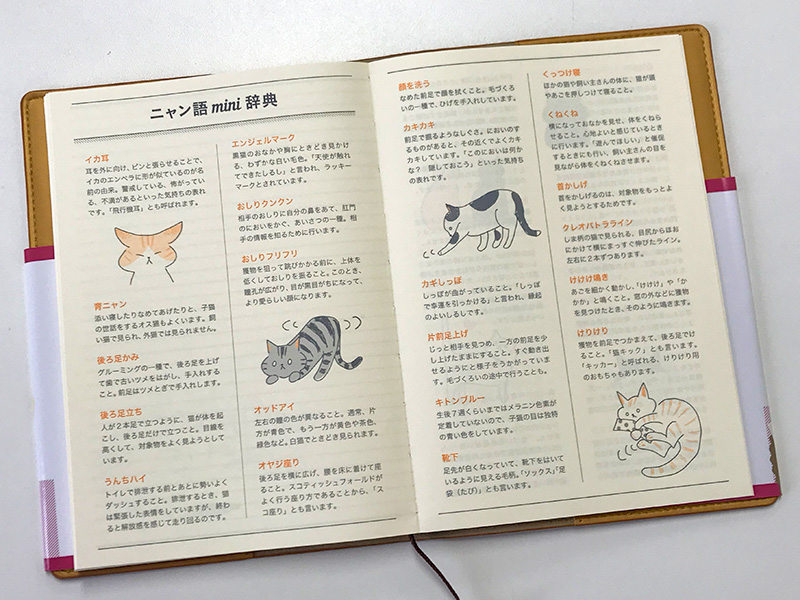 ニャン語 mini 辞典
イカ耳
耳を外に向け、ピンと張らせることで、
イカのエンペラに形が似ているのが名
前の由来。警戒している、怖がってい
る、不満があるといった気持ちの表れ
です。「飛行機耳」とも呼ばれます。
育ニャン
添い寝したりなめてあげたりと、子猫
の世話をするオス猫もよくいます。飼
い猫で見られ、外猫では見られません。
後ろ足かみ
グルーミングの一種で、後ろ足を上げ
て歯で古いツメをはがし、手入れする
こと。前足はツメとぎで手入れします。
後ろ足立ち
人が2本足で立つように、猫が体を起
こし、後ろ足だけで立つこと。目線を
高くして、対象物をよく見ようとして
います。
うんちハイ
トイレで排泄する前とあとに勢いよく
ダッシュすること。排泄するとき、猫
は緊張した表情をしていますが、終わ
ると解放感を感じて走り回るのです。
エンジェルマーク
黒猫のおなかや胸にときどき見かけ
る、わずかな白い毛色。「天使が触れ
てできたしるし」と言われ、ラッキー
マークとされています。
おしりクンクン
相手のおしりに自分の鼻をあて、肛門
のにおいをかぐ、あいさつの一種。相
手の情報を知るために行います。
おしりフリフリ
獲物を狙って跳びかかる前に、上体を
低くしておしりを振ること。このとき、
瞳孔が広がり、目が黒目がちになって、
より愛らしい顔になります。
オッドアイ
左右の瞳の色が異なること。通常、片
方が青色で、もう一方が黄色や茶色、
緑色など。白猫でときどき見られます。
オヤジ座り
後ろ足を横に広げ、腰を床に着けて座
ること。スコティッシュフォールドが
よく行う座り方であることから、「ス
コ座り」とも言います。
顔を洗う
なめた前足で顔を拭くこと。毛づくろ
いの一種で、ひげを手入れしています。
カキカキ
前足で掘るようなしぐさ。においのす
るものがあると、その近くでよくカキ
カキしています。「このにおいは何か
な？ 隠しておこう」といった気持ち
の表れです。
カギしっぽ
しっぽが曲がっていること。「しっぽ
で幸運を引っかける」と言われ、縁起
のよいしるしです。
片前足上げ
じっと相手を見つめ、一方の前足を少
し上げたままにすること。すぐ動き出
せるようにと様子をうかがっていま
す。毛づくろいの途中で行うことも。
キトンブルー
生後7週くらいまではメラニン色素が
定着していないので、子猫の目は独特
の青い色をしています。
靴下
足先が白くなっていて、靴下をはいて
いるように見える毛柄。「ソックス」「足
袋（たび）」とも言います。
くっつけ寝
ほかの猫や飼い主さんの体に、猫が頭
やあごを押しつけて寝ること。
くねくね
横になっておなかを見せ、体をくねら
せること。心地よいと感じているとき
に行います。「遊んでほしい」と催促
するときにも行い、飼い主さんの目を
見ながら体をくねくねさせます。
首かしげ
首をかしげるのは、対象物をもっとよ
く見ようとするためです。
クレオパトラライン
しま柄の猫で見られる、目尻からほお
にかけて横にまっすぐ伸びたライン。
左右に2本ずつあります。
けけけ鳴き
あごを細かく動かし、「けけけ」や「か
かか」と鳴くこと。窓の外などに獲物
を見つけたとき、そのように鳴きます。
けりけり
獲物を前足でつかまえて、後ろ足でけ
ること。「猫キック」とも言います。
「キッカー」と呼ばれる、けりけり用
のおもちゃもあります。